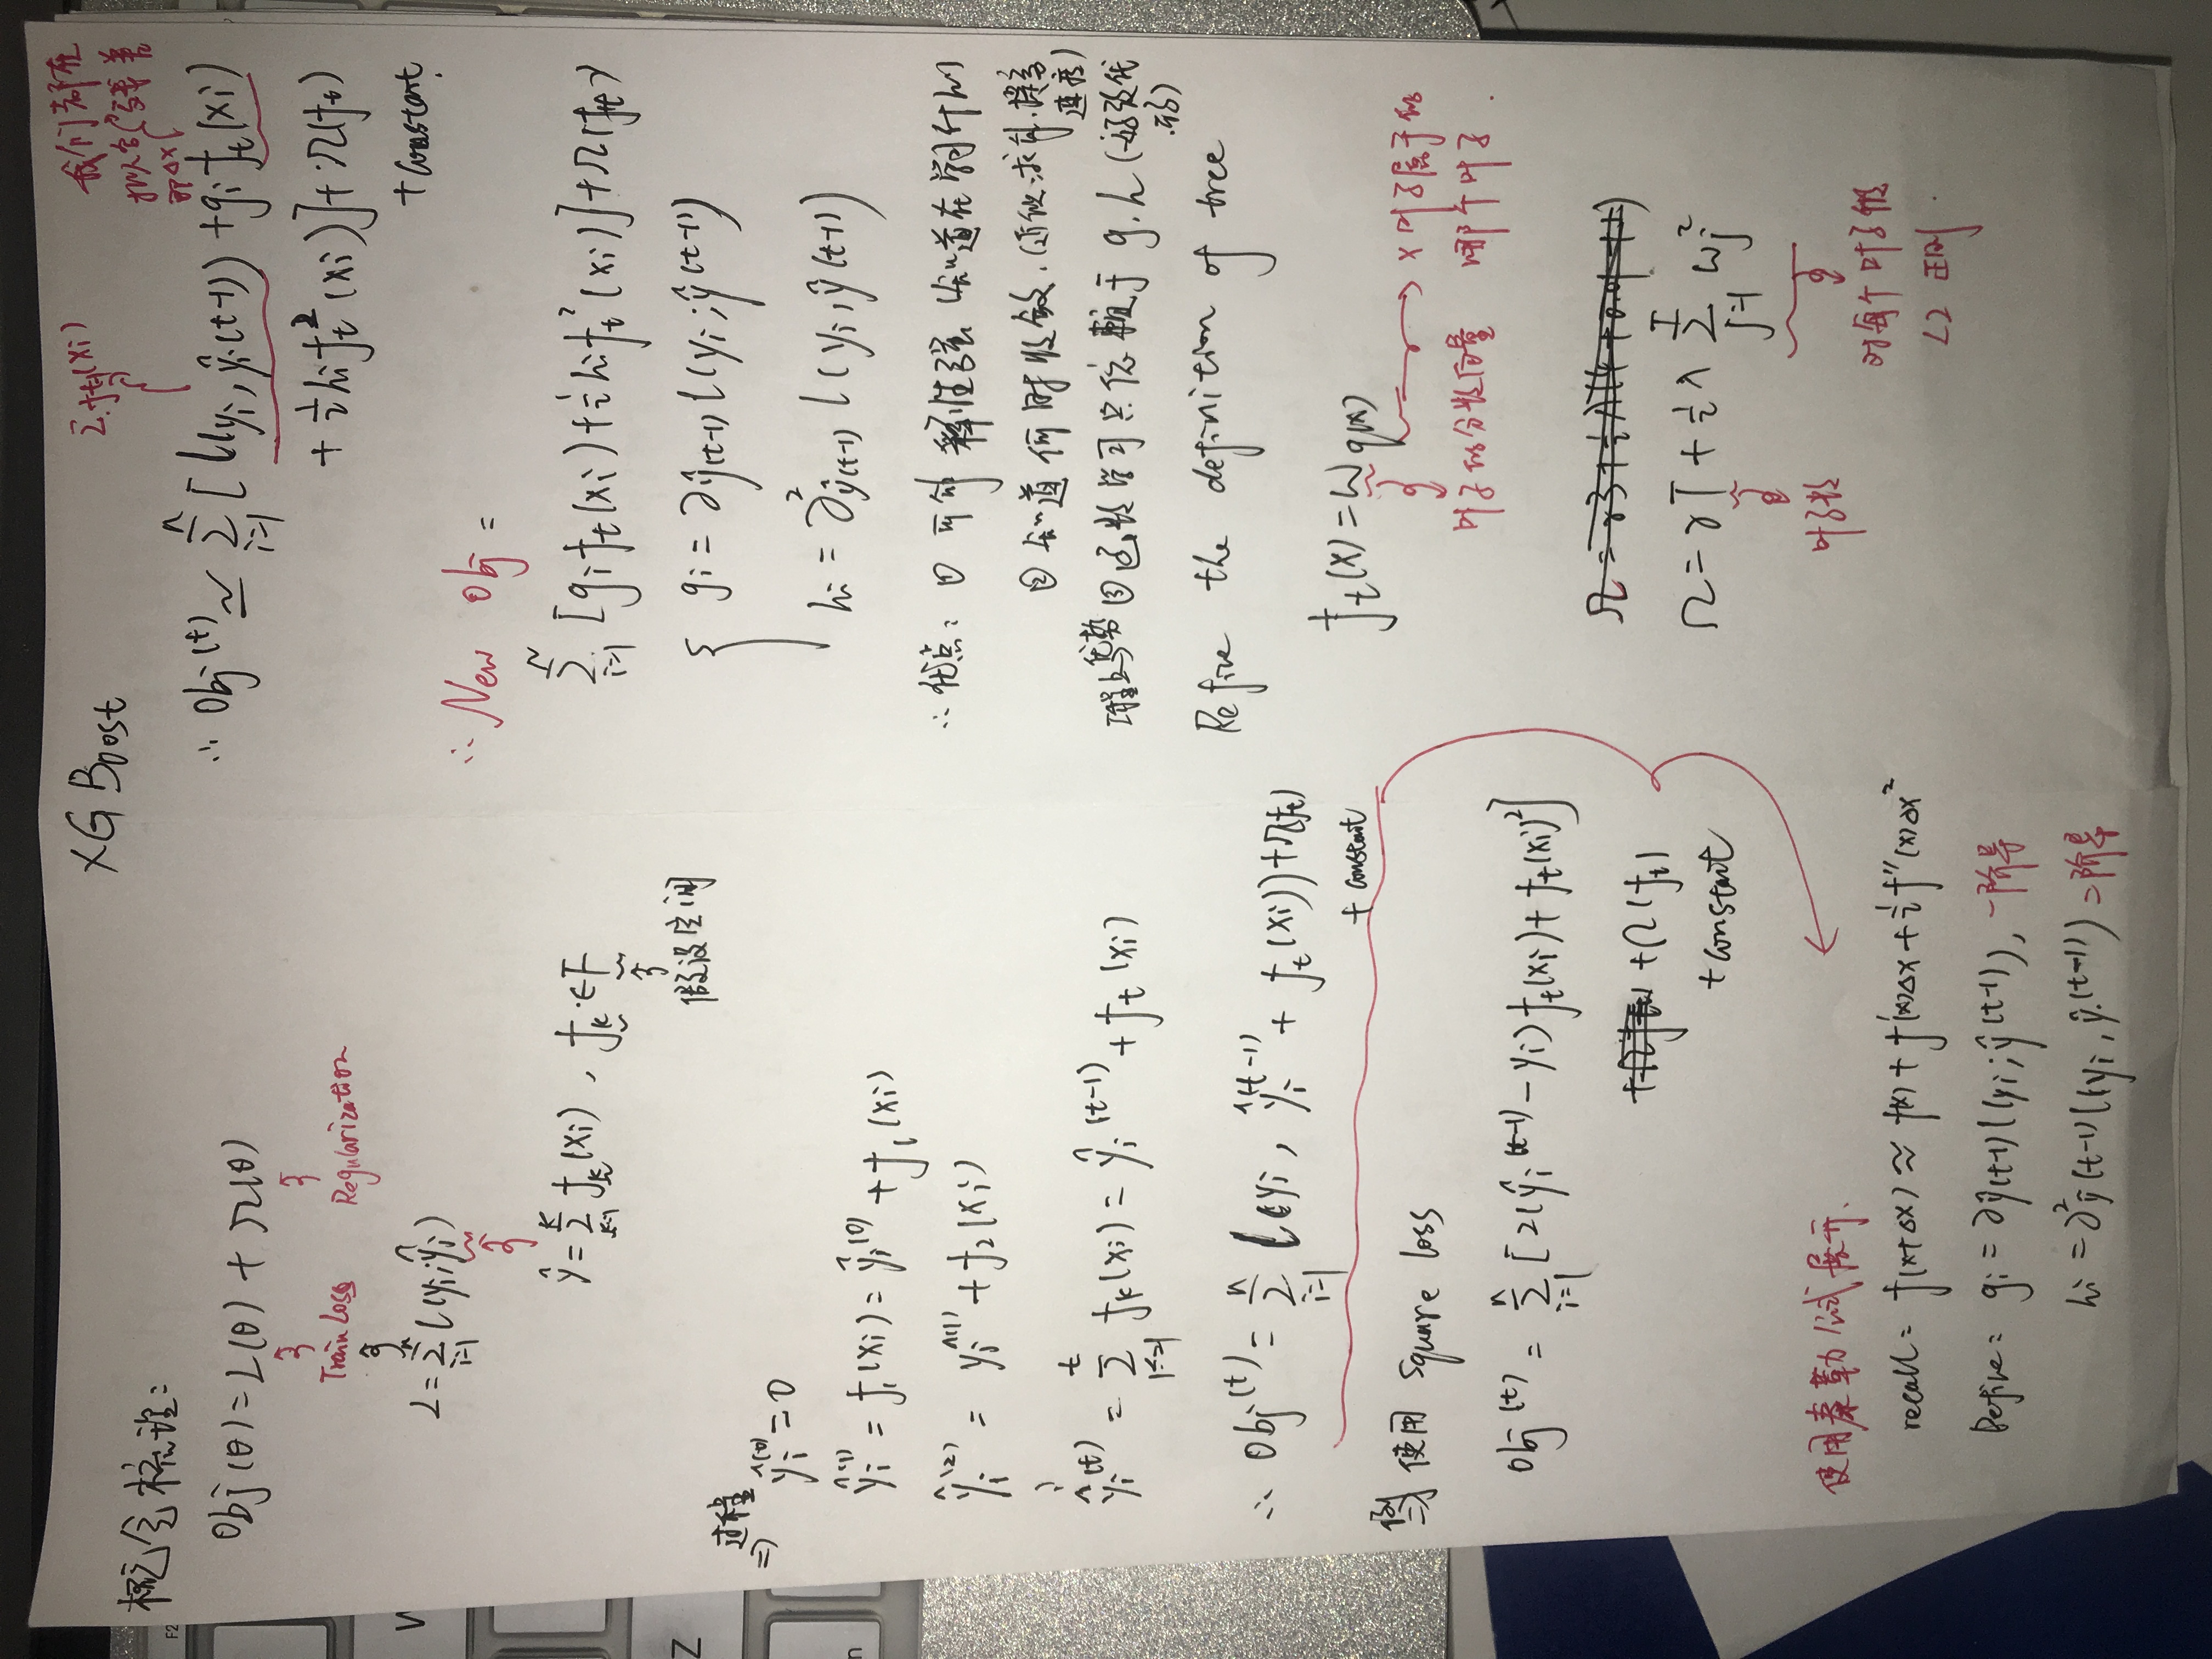 XGBoost
概念梳理:
Obj(θ) = L(θ) + Ω(θ)
Train Loss
Regularization
L = Σ_{i=1}^{n} l(yi; ŷi)
ŷ = Σ_{k=1}^{K} f_k(xi), f_k ∈ F
假设空间
过程
⇒ ŷi^(0) = 0
ŷi^(1) = f_1(xi) = ŷi^(0) + f_1(xi)
ŷi^(2) = ŷi^(1) + f_2(xi)
⋮
ŷi^(t) = Σ_{k=1}^{t} f_k(xi) = ŷi^(t-1) + f_t(xi)
∴ Obj^(t) = Σ_{i=1}^{n} l(yi, ŷi^(t-1) + f_t(xi)) + Ω(f_t)
+ constant
例 使用 square loss
Obj^(t) = Σ_{i=1}^{n} [2(ŷi^(t-1) - yi) f_t(xi) + f_t(xi)^2]
+ Ω(f_t)
+ constant
使用泰勒公式展开.
recall: f(x+Δx) ≈ f(x) + f'(x)Δx + ½ f''(x)Δx²
Define: gi = ∂ŷ(t-1) l(yi; ŷ^(t-1)), 一阶导
hi = ∂²ŷ(t-1) l(yi, ŷ^(t-1)) 二阶导
我们都在
拟合残差
即Δx
∴ Obj^(t) ≃ Σ_{i=1}^{n} [l(yi, ŷi(t-1)) + gi f_t(xi)
+ ½ hi f_t²(xi)] + Ω(f_t)
+ constant.
∴ New Obj =
Σ_{i=1}^{n} [gi f_t(xi) + ½ hi f_t²(xi)] + Ω(f_t)
gi = ∂ŷ(t-1) l(yi; ŷ^(t-1))
hi = ∂²ŷ(t-1) l(yi, ŷ(t-1))
∴ 优点: ① 可解释性强 知道在学习什么
② 知道何时收敛. (近似求解,提高
速度)
工程上优势 ③ 函数学习只依赖于 g.h
Refine the definition of tree
f_t(x) = w_q(x)
x叶子属于的
叶子的分数向量 哪个叶子.
Ω = γT + ½ λ Σ_{j=1}^{T} wj²
叶子数
对每个叶子做
L2 正则.